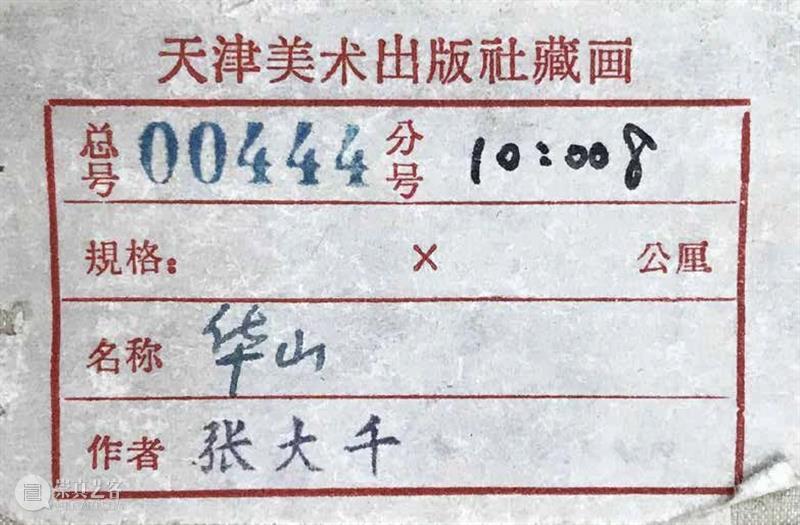 天津美术出版社藏画
总号 00444 分号 10:008
規格: × 公厘
名称 华山
作者 张大千
崇真艺客